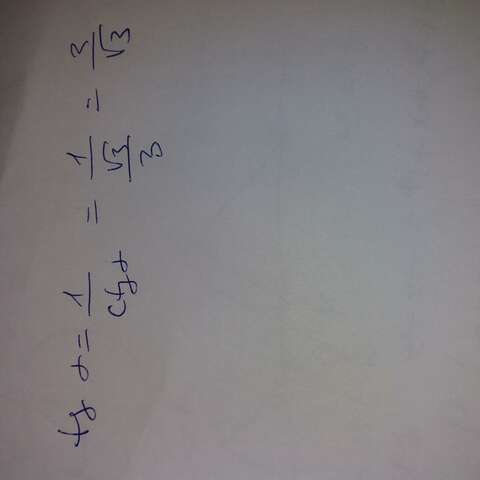 tg α = 1/ctg α = 1/(√3/3) = 3/√3